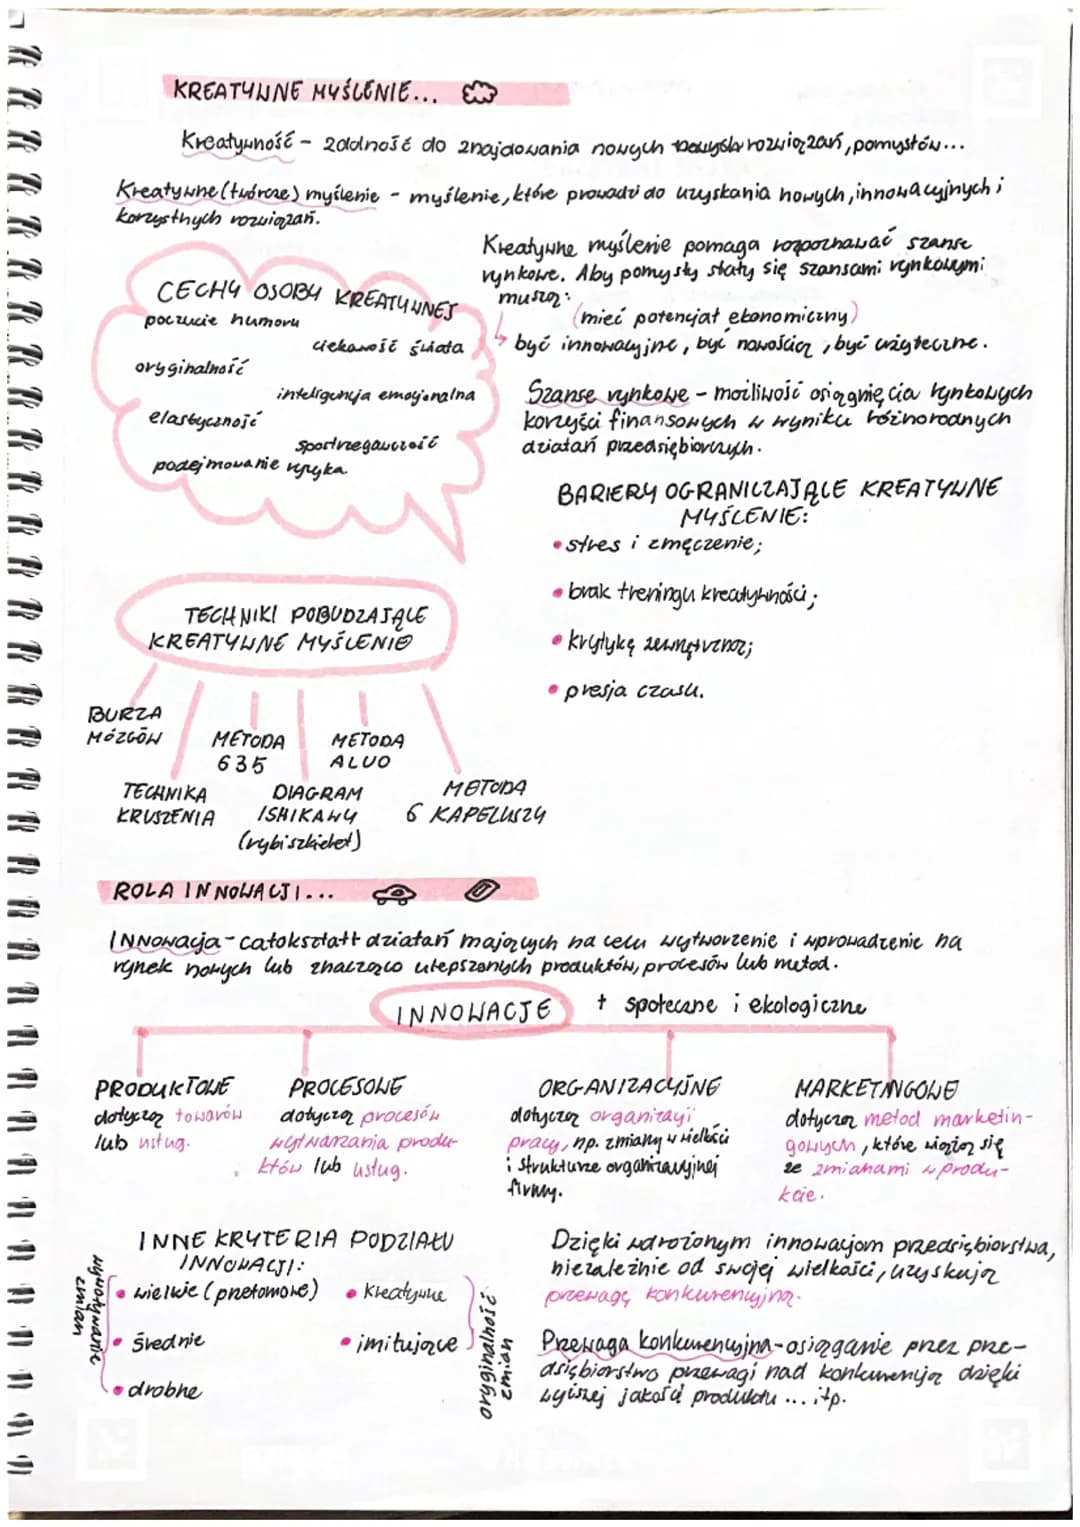 KREATYWNE MYŚLENIE...
Kreatywność - zdolność do znajdowania nowych rozwiązań, pomysłów...
Kreatywne (twórcze) myślenie - myślenie, które prowadzi do uzyskania nowych, innowacyjnych i
korzystnych rozwiązań.
CECHY OSOBY KREATYWNEJ
poczucie humoru
ciekawość świata
oryginalność
inteligencja emocjonalna
elastyczność
spostrzegawczość
podejmowanie ryzyka
Kreatywne myślenie pomaga rozpoznawać szanse
rynkowe. Aby pomysły stały się szansami rynkowymi
muszą:
(mieć potencjał ekonomiczny)
być innowacyjne, być nowością, być użyteczne.
Szanse rynkowe - możliwość osiągnięcia rynkowych
korzyści finansowych w wyniku różnorodnych
działań przedsiębiorczych.
BARIERY OGRANICZAJĄCE KREATYWNE
MYŚLENIE:
• stres i zmęczenie;
• brak treningu kreatywności;
• krytykę zewnętrzną;
• presja czasu.
TECHNIKI POBUDZAJĄCE
KREATYWNE MYŚLENIE
BURZA
MÓZGÓW
TECHNIKA
KRUSZENIA
METODA
635
DIAGRAM
ISHIKAWY
(rybi szkielet)
METODA
ALUO
METODA
6 KAPELUSZY
ROLA INNOWACJI...
Innowacja - całokształt działań mających na celu wytworzenie i wprowadzenie na
rynek nowych lub znacząco ulepszonych produktów, procesów lub metod.
INNOWACJE + społeczne i ekologiczne
PRODUKTOWE
dotyczą towarów
lub usług.
PROCESOWE
dotyczą procesów
wytwarzania produ-
któw lub usług.
ORGANIZACYJNE
dotyczą organizacji
pracy, np. zmiany w wielkości
i strukturze organizacyjnej
firmy.
MARKETINGOWE
dotyczą metod marketin-
gowych, które wiążą się
ze zmianami w produ-
kcie.
INNE KRYTERIA PODZIAŁU
INNOWACJI:
wywoływanie
zmian
• wielkie (przełomowe)
• średnie
• drobne
• kreatywne
• imitujące
oryginalność
zmian
Dzięki wdrożonym innowacjom przedsiębiorstwa,
niezależnie od swojej wielkości, uzyskują
przewagę konkurencyjną.
Przewaga konkurencyjna - osiąganie przez prze-
dsiębiorstwo przewagi nad konkurencją dzięki
wyższej jakości produktu ... itp.